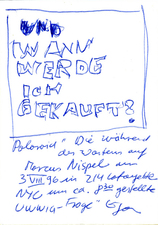 UND
WANN
WERDE
ICH
GEKAUFT?
Polaroid" Die während
des Wartens auf
Marcus Nispel am
3 VIII 96 in 214 Lafayette
NYC um ca. 8 gestellte
UWWIG-Frage"